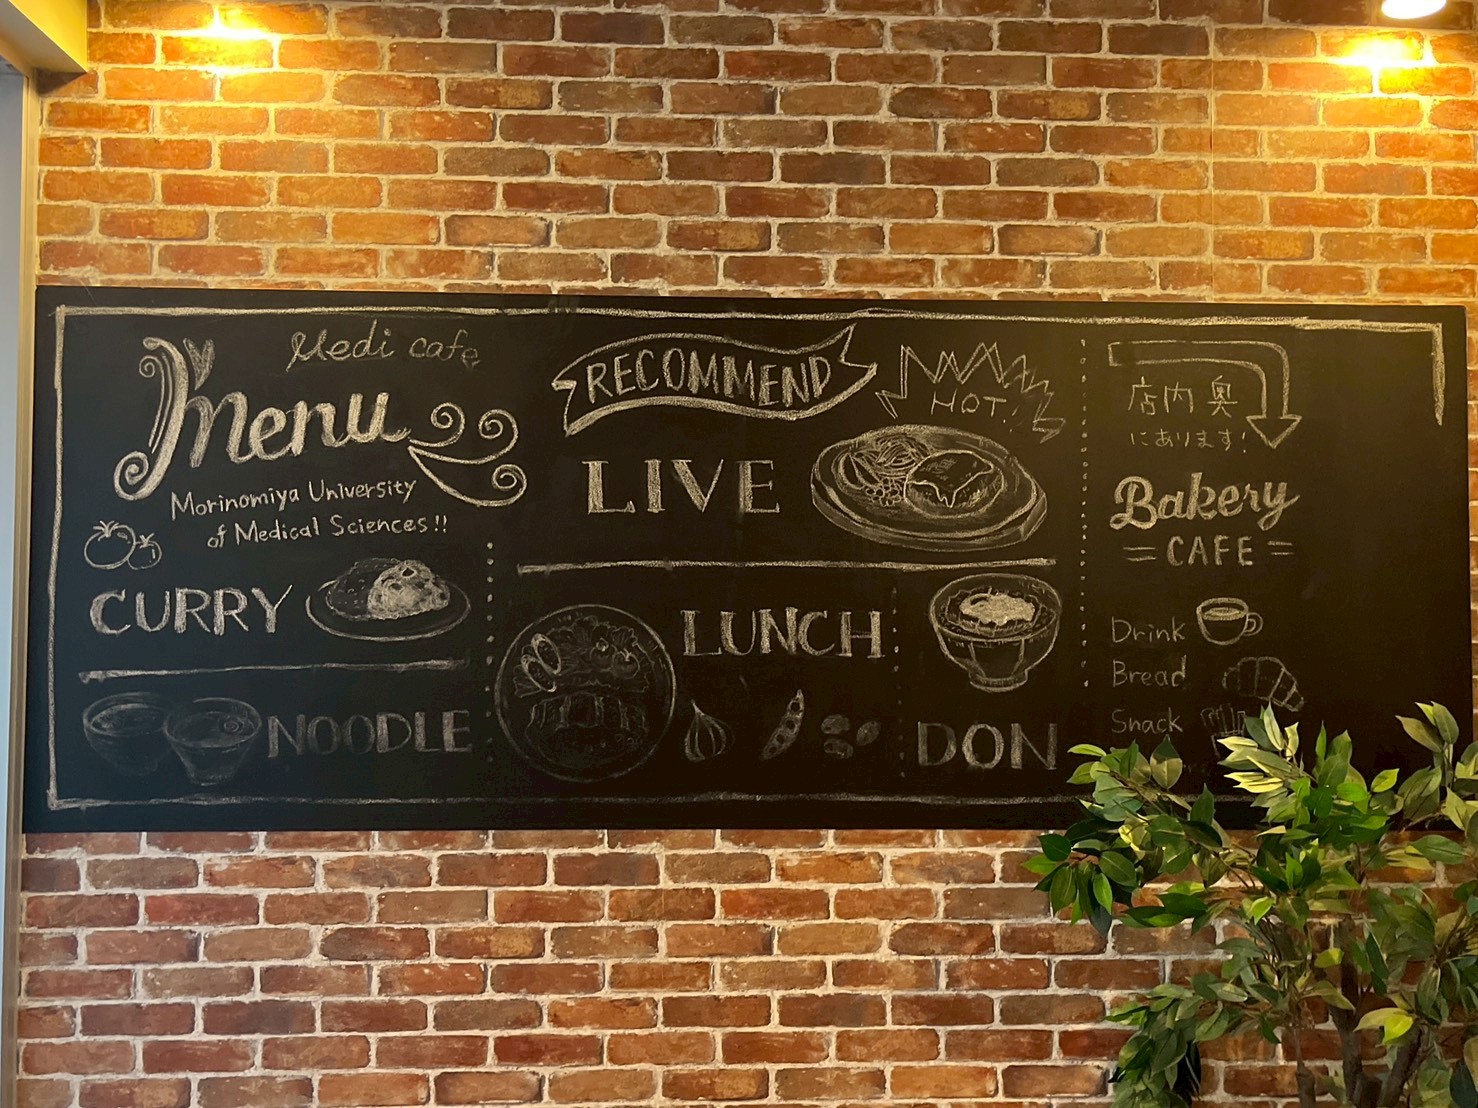 Medi cafe
Menu
Morinomiya University
of Medical Sciences!!
CURRY
NOODLE
RECOMMEND
HOT!
LIVE
LUNCH
DON
店内奥
にあります!
Bakery
=CAFE=
Drink
Bread
Snack